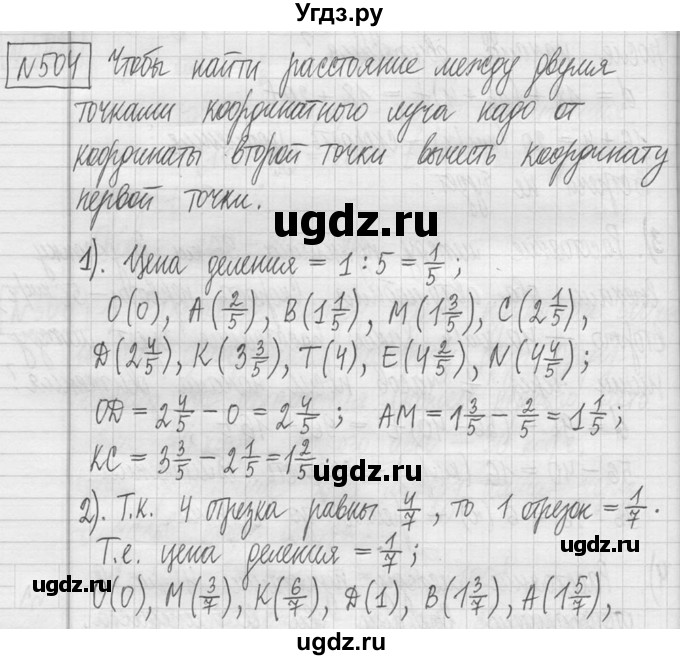 Угдз.ру
№504 Чтобы найти расстояние между двумя
точками координатного луча надо от
координаты второй точки вычесть координату
первой точки.
ugdz.ru
1). Цена деления = 1 : 5 = 1/5 ;
O(0), A(2/5), B(1 1/5), M(1 3/5), C(2 1/5),
Д(2 4/5), K(3 3/5), T(4), E(4 2/5), N(4 4/5);
OД = 2 4/5 - 0 = 2 4/5 ; AM = 1 3/5 - 2/5 = 1 1/5 ;
KC = 3 3/5 - 2 1/5 = 1 2/5 ;
ugdz.ru
2). Т.к. 4 отрезка равны 4/7, то 1 отрезок = 1/7.
Т.е. цена деления = 1/7 ;
ugdz.ru
ugdz.ru
O(0), M(3/7), K(6/7), Д(1), B(1 3/7), A(1 5/7),
ugdz.ru